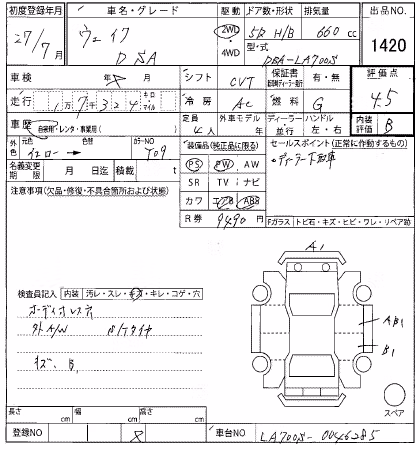 初度登録年月 車名・グレード 駆動 ドア数・形状 排気量 出品NO.
27/7 ウェイク 2WD 5D H/B 660 cc
D SA 4WD 型・式 1420
DBA-LA700S
車検 年 月 シフト CVT 保証書 有・無 評価点
走行 1万7千324 キロ マイル 冷房 AC 燃料 G 4.5
車歴 自家用・レンタ・事業用( ) 定員 4人 外車モデル 年 ディーラー・並行 ハンドル 左・右 内装評価 B
外色 元色 イエロー 色替 カラーNO Y09
名義変更期限 月 日迄 積載 t
装備品(純正品に限る) セールスポイント(正常に動作するもの)
PS PW AW ・ディーラー下取車
SR TV ナビ
カワ エアB ABS
R券 9490 円
注意事項(欠品・修復・不具合箇所および状態)
Fガラス トビ石・キズ・ヒビ・ワレ・リペア跡
A1
検査員記入 内装 汚レ・スレ・キズ・キレ・コゲ・穴
オーディオレス
社外A/W
キズ B
AB1
B1
スペア
長さ cm 幅 cm 高さ cm
登録NO 車台NO LA700S-0046285